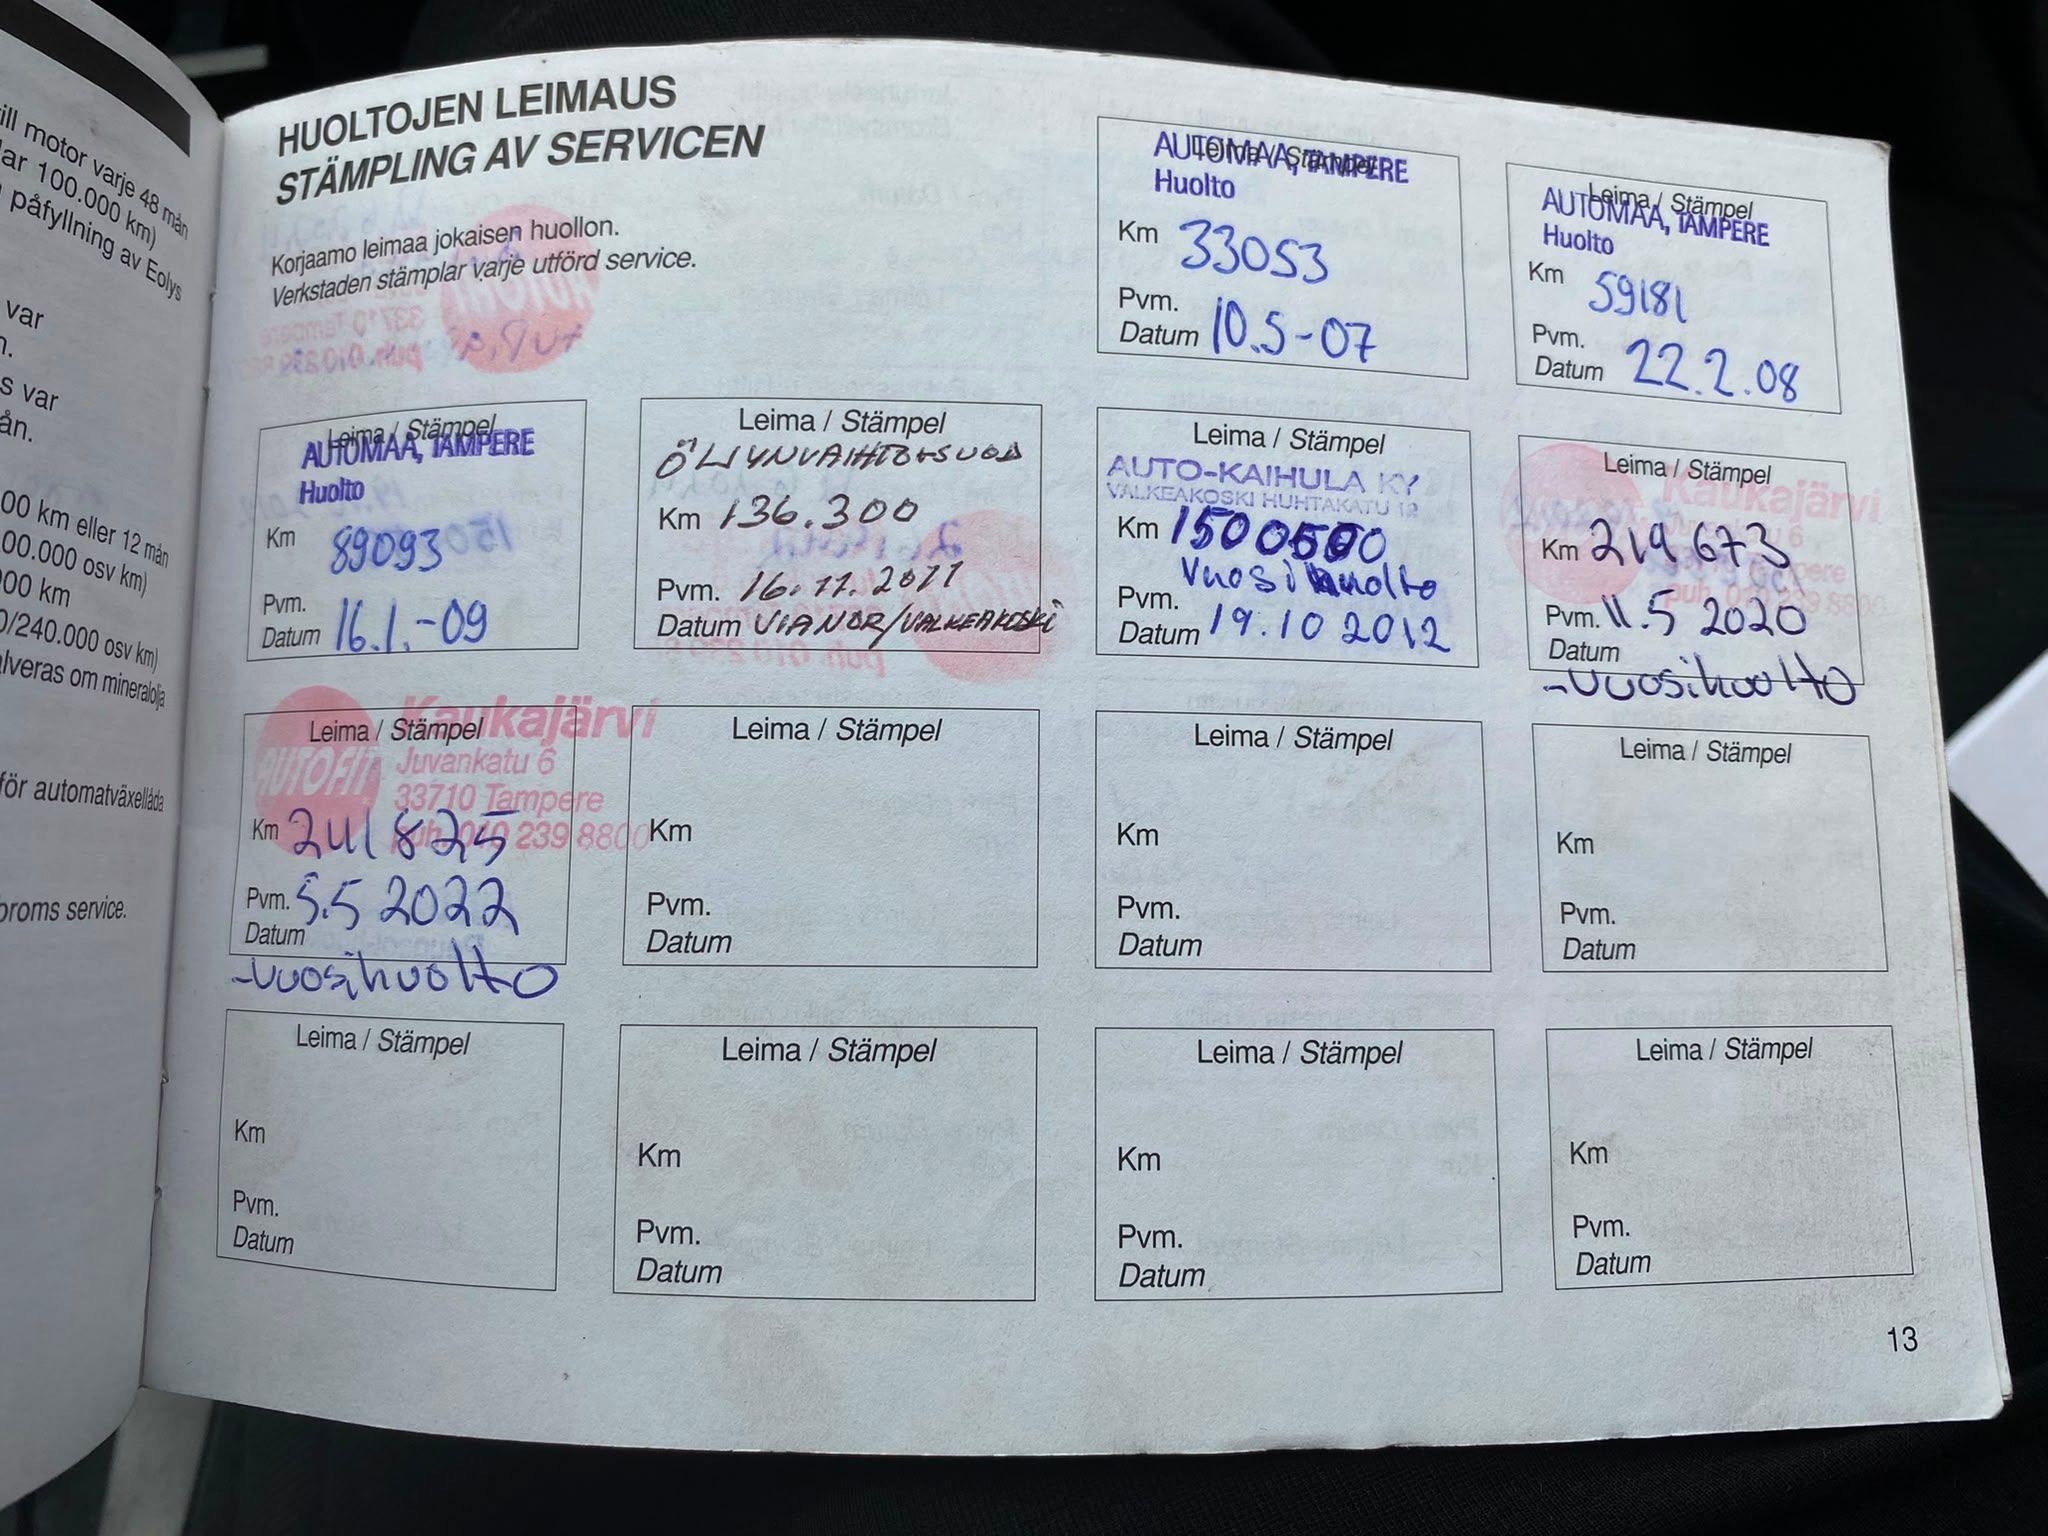 ill motor varje 48 mån
lar 100.000 km)
påfyllning av Eolys
var
n.
s var
ån.
00 km eller 12 mån
00.000 osv km)
000 km
0/240.000 osv km)
alveras om mineralolja
för automatväxellåda
broms service.
HUOLTOJEN LEIMAUS
STÄMPLING AV SERVICEN
Korjaamo leimaa jokaisen huollon.
Verkstaden stämplar varje utförd service.
Leima / Stämpel
AUTOMAA, TAMPERE
Huolto
Km 33053
Pvm.
Datum 10.5-07
Leima / Stämpel
AUTOMAA, TAMPERE
Huolto
Km 59181
Pvm.
Datum 22.2.08
Leima / Stämpel
AUTOMAA, TAMPERE
Huolto
Km 89093
Pvm.
Datum 16.1.-09
Leima / Stämpel
Km 136.300
Pvm. 16.11.2011
Datum VIANOR/VALKEAKOSKI
Leima / Stämpel
AUTO-KAIHULA KY
VALKEAKOSKI HUHTAKATU 12
Km
Vuosihuolto
Pvm.
Datum 19.10 2012
Leima / Stämpel
Kaukajärvi
Km 219 673
Pvm. 11.5 2020
Datum
-vuosihuolto
Kaukajärvi
Leima / Stämpel
AUTOFIT
Juvankatu 6
33710 Tampere
puh. 010 239 8800
Km 241825
Pvm. 5.5 2022
Datum
-vuosihuolto
Leima / Stämpel
Km
Pvm.
Datum
Leima / Stämpel
Km
Pvm.
Datum
Leima / Stämpel
Km
Pvm.
Datum
Leima / Stämpel
Km
Pvm.
Datum
Leima / Stämpel
Km
Pvm.
Datum
Leima / Stämpel
Km
Pvm.
Datum
Leima / Stämpel
Km
Pvm.
Datum
13